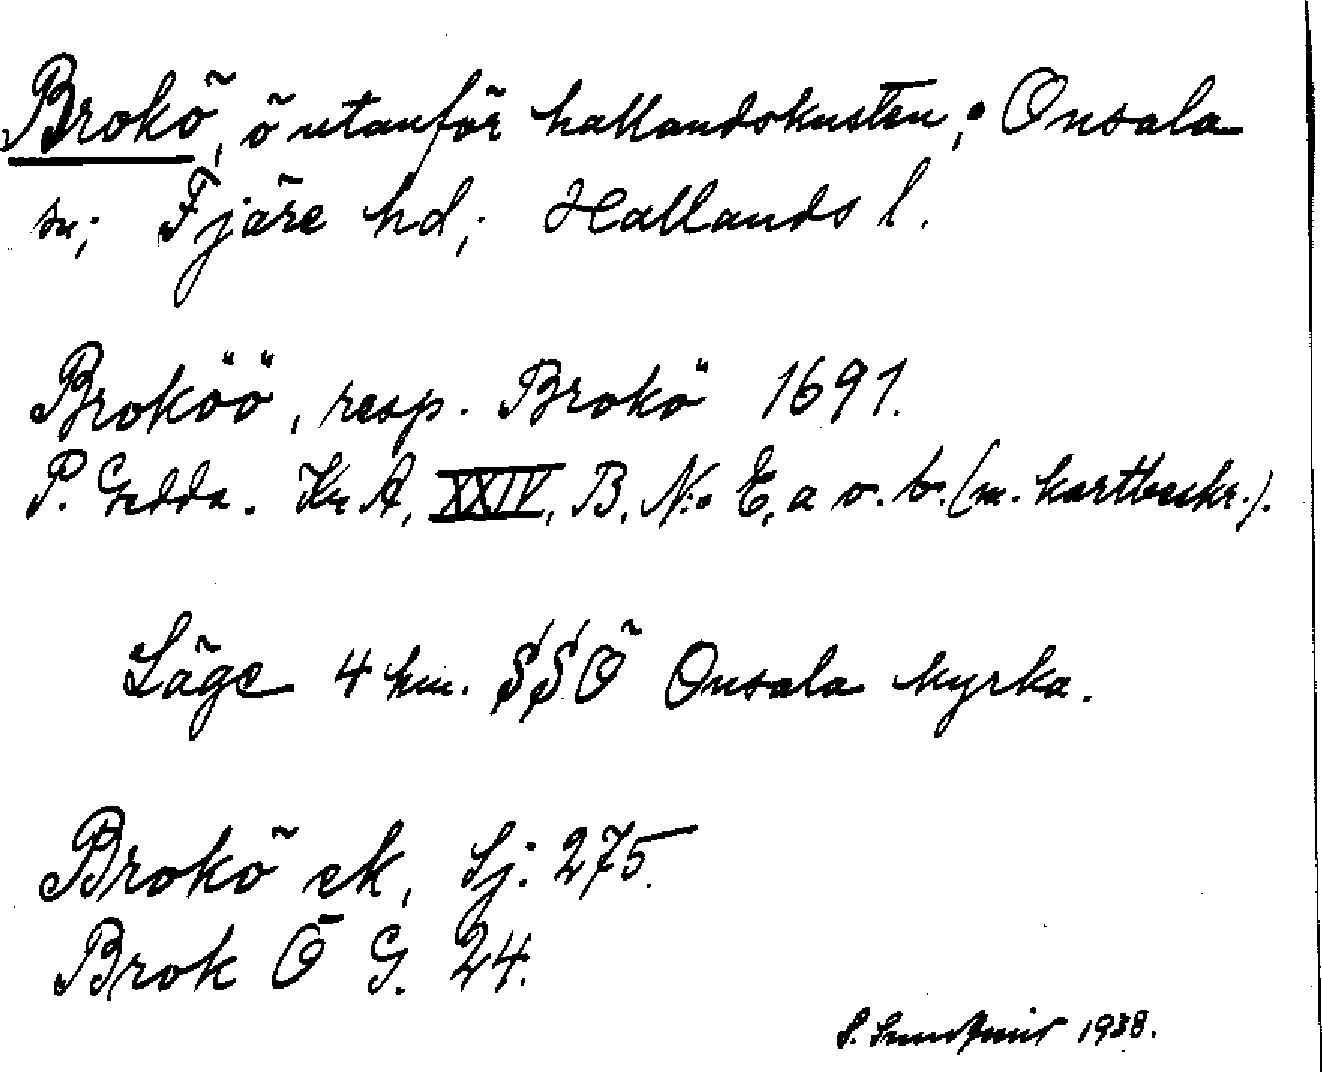 Brokö, ö utanför hallandskusten; Onsala
sn; Fjäre hd; Hallands l.
Broköö, resp. Brokö 1691.
P. Gedda. Kr. A, XXIV, B. N:o E, a o. b. (m. kartbeskr.).
Läge 4 km. SSÖ Onsala kyrka.
Brokö ek, Sj: 275.
Brok Ö G. 24.
S. 1938.